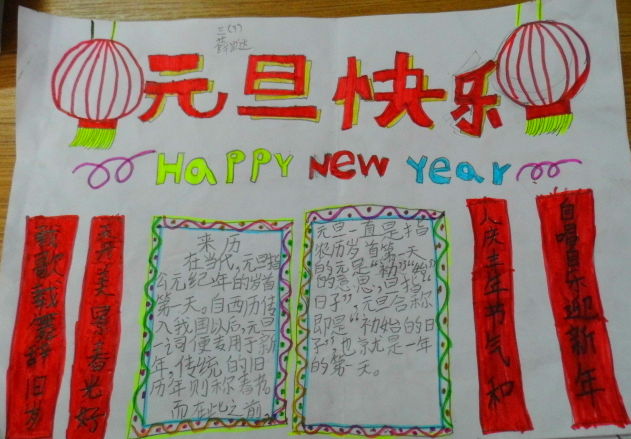 三(1)
元旦快乐
HAPPY NEW YEAR
新歌载舞辞旧岁
美景春光好
来历
在当代,元旦指
公元纪年的岁首
第一天。自西历传
入我国以后,元旦
一词便专用于新
年,传统的旧
历年则称春节。
而在此之前,
元旦一直是指
农历岁首第一天
的元是“初”“始”
的意思,旦指“
日子”,元旦合称
即是“初始的日
子”,也就是一年
的第一天。
人庆丰年节气和
自唱昱乐迎新年